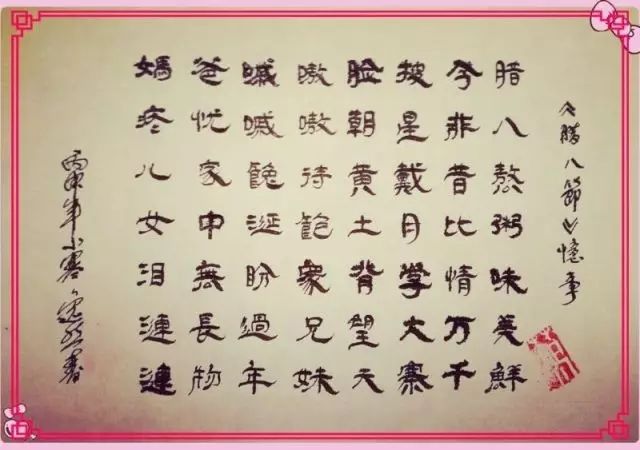 《腊八節》憶事
腊八熬粥味美鮮
今非昔比情万千
披星戴月学大寨
脸朝黄土背望天
嗷嗷待飽衆兄妹
嘁嘁饞涎盼過年
爸忧家中無長物
媽疼儿女泪漣漣
丙申年小寒書